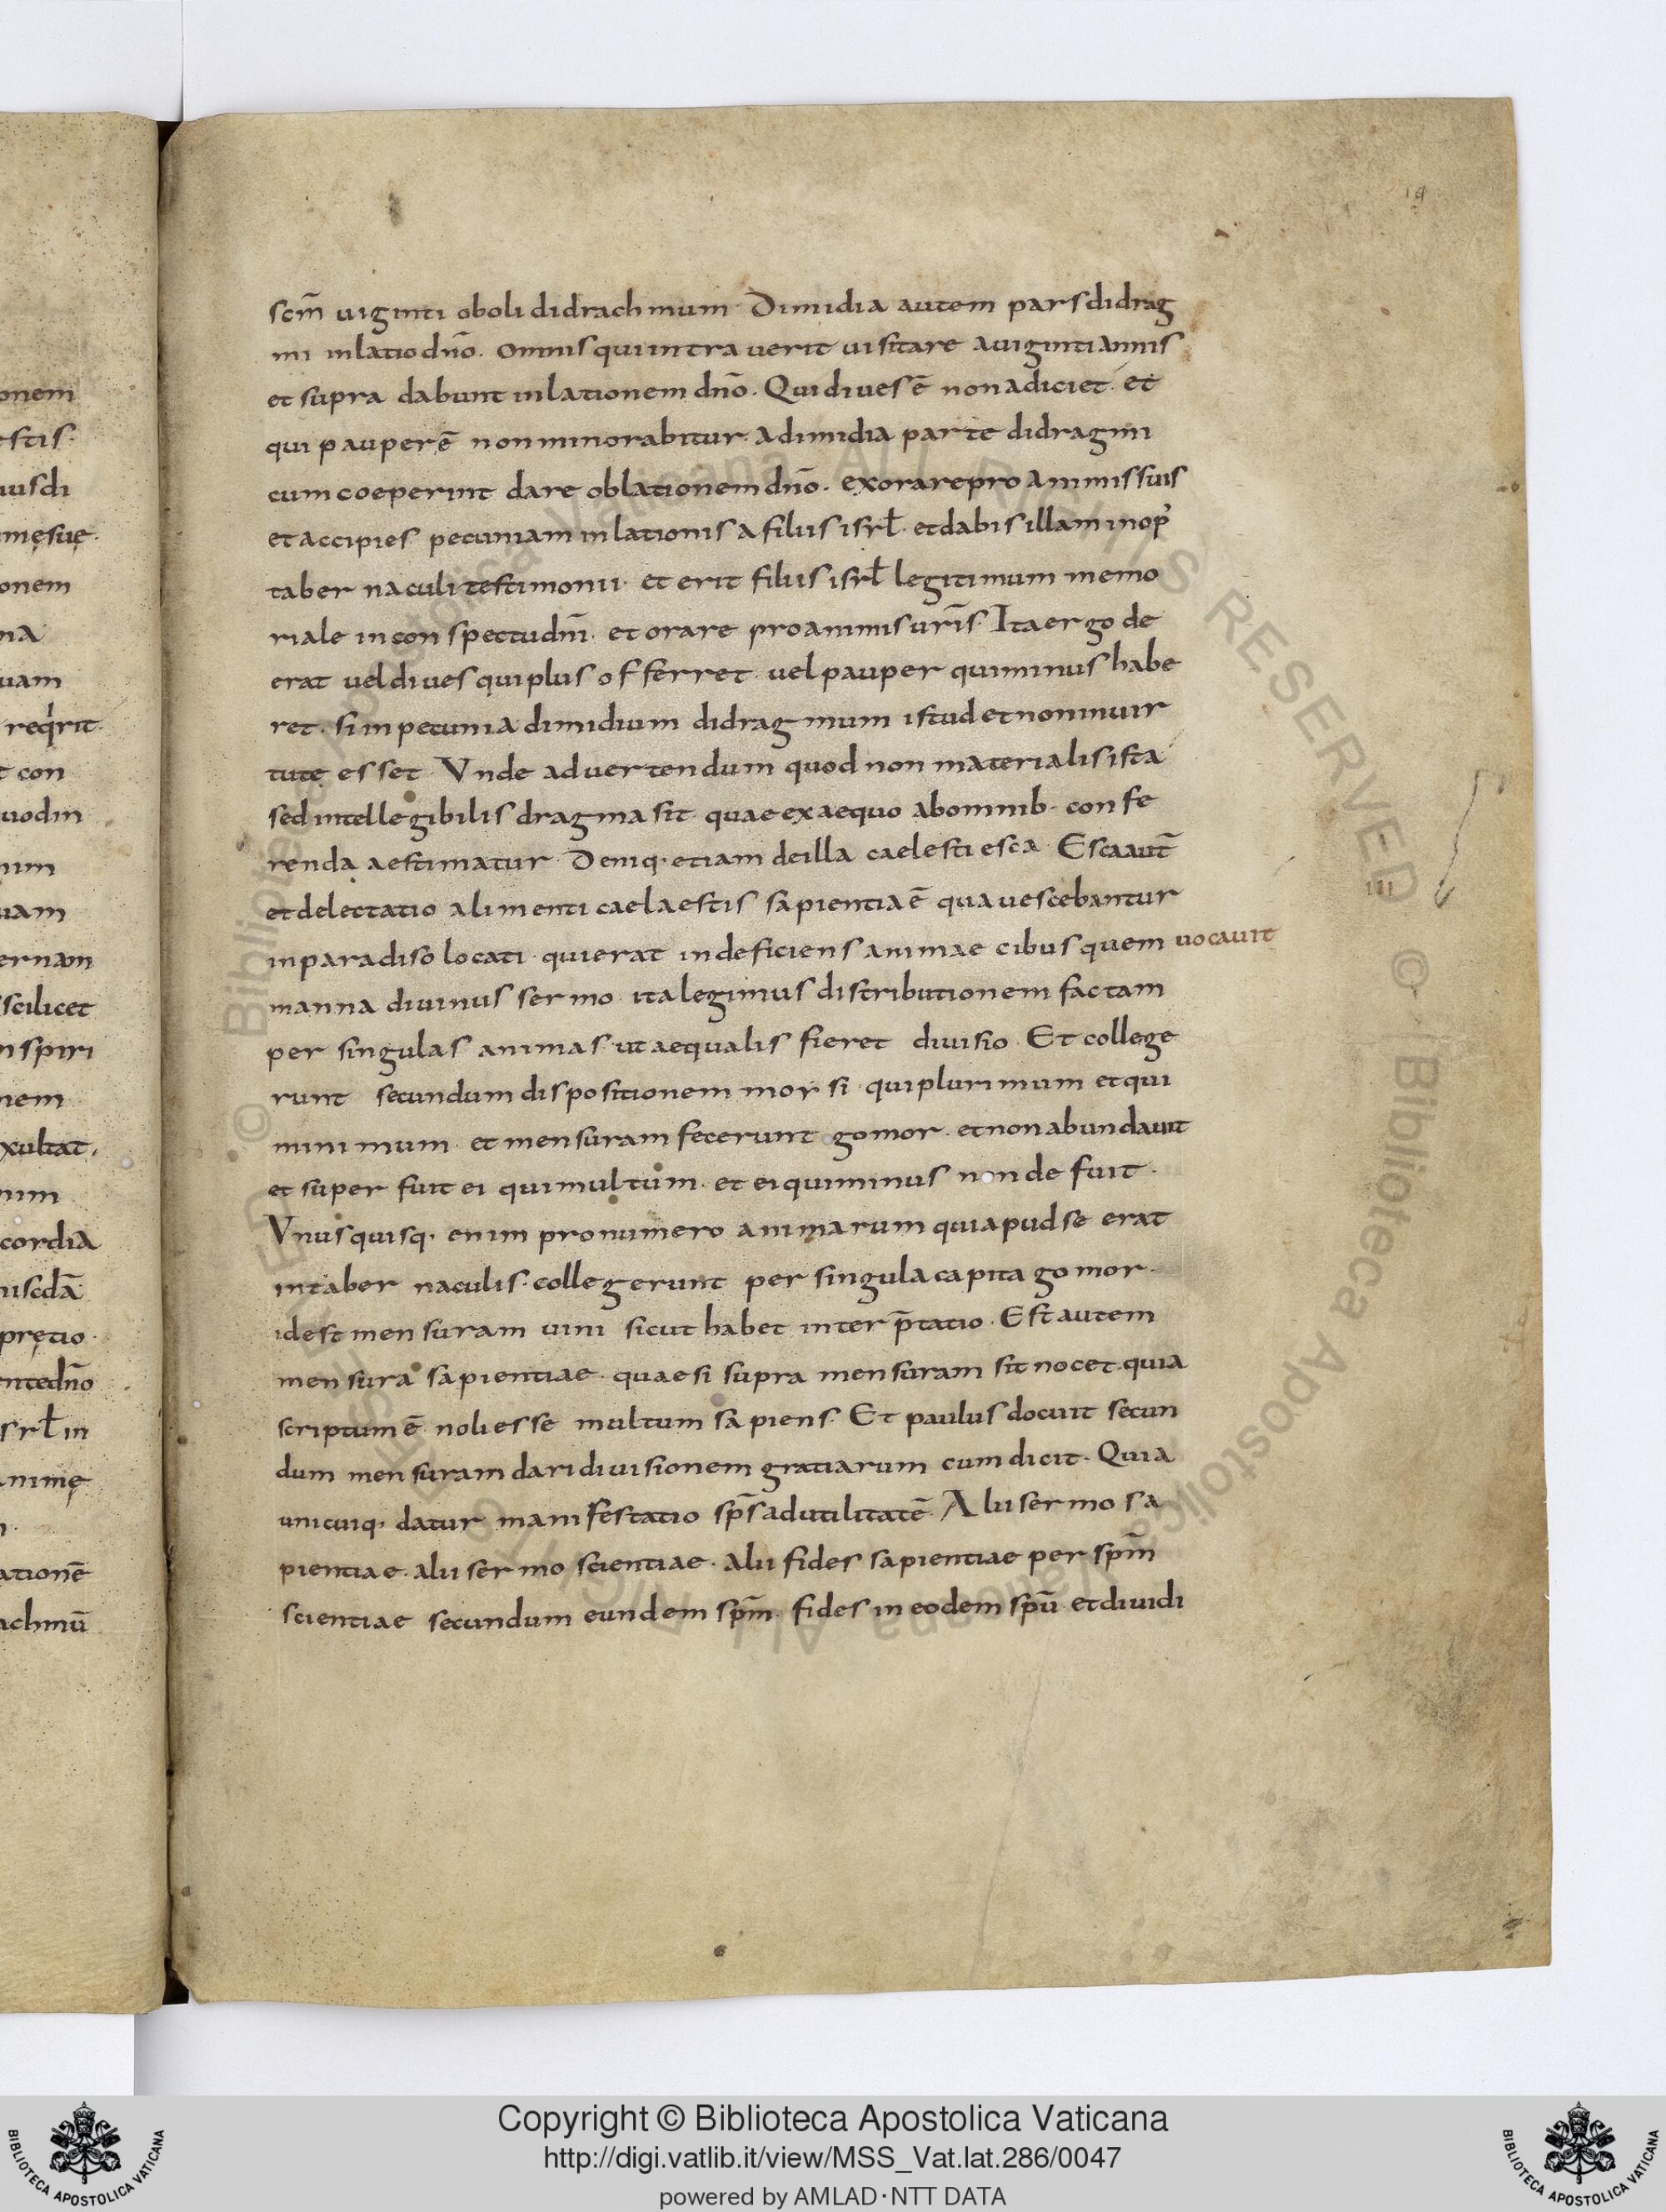 onem
estis·
iusdi
męsuę·
onem
na
uam
req̓rit·
t con
uodin
nim
uam
ernam
scilicet
nspiri
nem
xultat·
nim
cordia
uiscdā
pretio·
ntedño
srł in
nimę
ationē
achmū
19
scm̄ uiginti oboli didrachmum· Dimidia autem pars didrag
mi inlatio dño· omnis qui intrauerit uisitare auiginti annis
et supra dabunt inlationem dño· Qui diues ē non adiciet· et
qui pauper ē non minorabitur· Adimidia parte didragmi
cum coeperint dare oblationem dño· exorare pro animis suis
et accipies pecuniam inlationis a filiis isrł· et dabis illam in op̓
tabernaculi testimonii· et erit filiis isrł legitimum memo
riale in conspectu dñi· et orare pro animis urīs Ita ergo de
erat uel diues qui plus offerret· uel pauper qui minus habe
ret· si in pecunia dimidium didragmum istud et non in uir
tutę esset· Vnde aduertendum quod non materialis ista
sed intellegibilis dragma sit· quae ex aequo ab omnib· confe
renda aestimatur· Deniq· etiam de illa caelesti esca· Esca aut̄
et delectatio alimenti caelaestis sapientia ē qua uescebantur
in paradiso locati· qui erat indeficiens animae cibus quem uocauit
manna diuinus sermo· ita legimus distributionem factam
per singulas animas· ut aequalis fieret diuisio· Et college
runt secundum dispositionem morsi· qui plurimum et qui
minimum· et mensuram fecerunt gomor· et non abundauit
et super fuit ei qui multum· et ei qui minus non defuit·
Vnusquisq· enim pro numero animarum qui apud se erat
in tabernaculis· collegerunt per singula capita gomor·
id est mensuram uini sicut habet interp̄tatio· Est autem
mensura sapientiae· quae si supra mensuram sit nocet· quia
scriptum ē noli esse multum sapiens· Et paulus docuit secun
dum mensuram dari diuisionem gratiarum cum dicit· Quia
unicuiq· datur manifestatio sp̄s ad utilitatē· Alii sermo sa
pientiae· alii sermo scientiae· alii fides sapientiae per sp̄m
scientiae secundum eundem sp̄m· fides in eodem spū· et diuidi
III
Copyright © Biblioteca Apostolica Vaticana
http://digi.vatlib.it/view/MSS_Vat.lat.286/0047
powered by AMLAD·NTT DATA
BIBLIOTECA APOSTOLICA VATICANA
BIBLIOTECA APOSTOLICA VATICANA